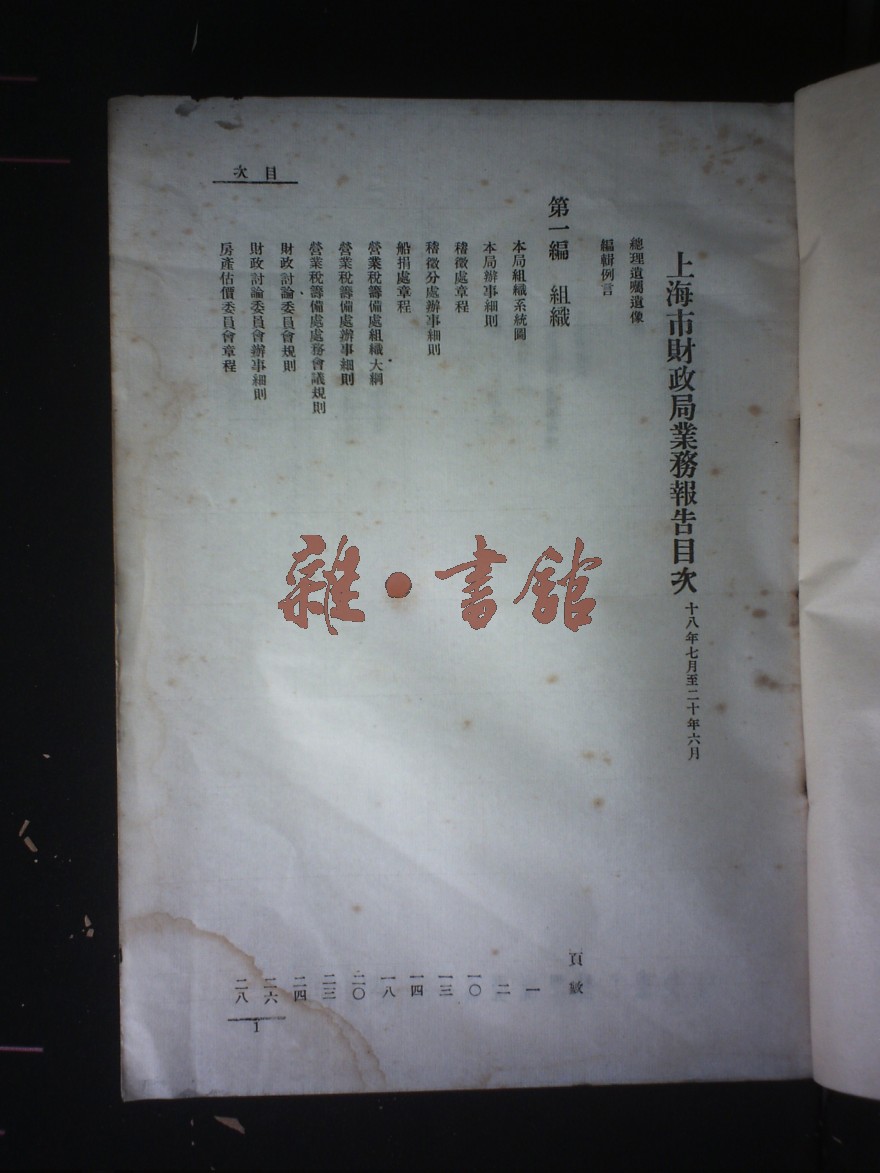 上海市財政局業務報告目次 十八年七月至二十年六月
總理遺囑遺像
編輯例言
頁數
第一編 組織
本局組織系統圖 一
本局辦事細則 二
稽徵處章程 一〇
稽徵分處辦事細則 一三
船捐處章程 一四
營業稅籌備處組織大綱 一八
營業稅籌備處辦事細則 二〇
營業稅籌備處處務會議規則 二三
財政討論委員會規則 二四
財政討論委員會辦事細則 二六
房產估價委員會章程 二八
目次
1
雜·書館